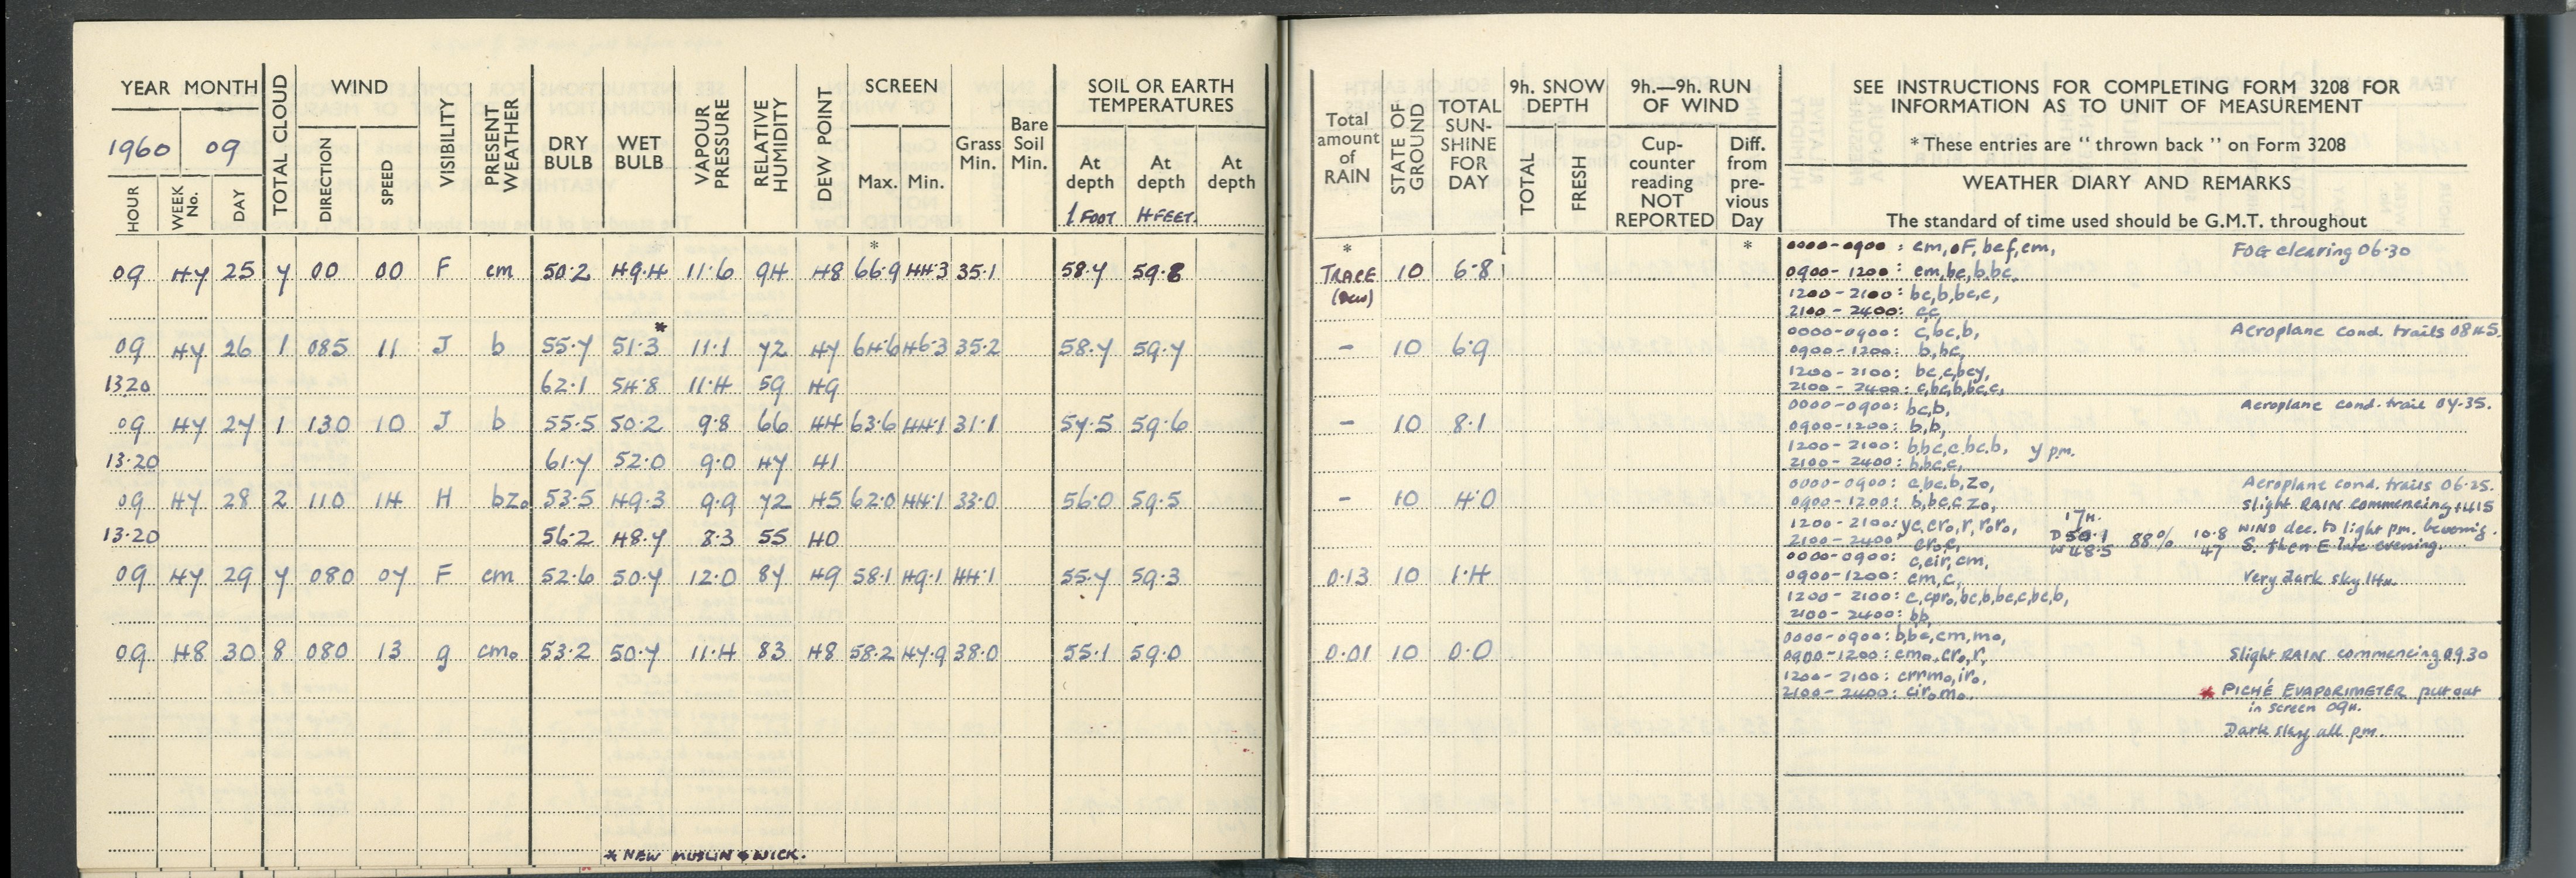 YEAR MONTH
1960 09
HOUR
WEEK No.
DAY
TOTAL CLOUD
WIND
DIRECTION
SPEED
VISIBILITY
PRESENT WEATHER
DRY BULB
WET BULB
VAPOUR PRESSURE
RELATIVE HUMIDITY
DEW POINT
SCREEN
Max. Min.
Grass Min.
Bare Soil Min.
SOIL OR EARTH TEMPERATURES
At depth 1 FOOT
At depth 4 FEET.
At depth
*
09 47 25 7 00 00 F cm 50.2 49.4 11.6 94 48 66.9 44.3 35.1 58.7 59.8
*
09 47 26 1 085 11 J b 55.7 51.3 11.1 72 47 64.6 46.3 35.2 58.7 59.7
1320 62.1 54.8 11.4 59 49
09 47 27 1 130 10 J b 55.5 50.2 9.8 66 44 63.6 44.1 31.1 57.5 59.6
13.20 61.7 52.0 9.0 47 41
09 47 28 2 110 14 H bz₀ 53.5 49.3 9.9 72 45 62.0 44.1 33.0 56.0 59.5
13.20 56.2 48.7 8.3 55 40
09 47 29 7 080 07 F cm 52.6 50.7 12.0 87 49 58.1 49.1 44.1 55.7 59.3
09 48 30 8 080 13 g cm₀ 53.2 50.7 11.4 83 48 58.2 47.9 38.0 55.1 59.0
* NEW MUSLIN & WICK.
Total amount of RAIN
STATE OF GROUND
TOTAL SUN-SHINE FOR DAY
9h. SNOW DEPTH
TOTAL
FRESH
9h.—9h. RUN OF WIND
Cup-counter reading NOT REPORTED
Diff. from pre-vious Day
SEE INSTRUCTIONS FOR COMPLETING FORM 3208 FOR
INFORMATION AS TO UNIT OF MEASUREMENT
* These entries are " thrown back " on Form 3208
WEATHER DIARY AND REMARKS
The standard of time used should be G.M.T. throughout
* *
TRACE 10 6.8
(Dew)
0000-0900: cm,oF,bcf,cm, FOG clearing 06.30
0900-1200: cm,bc,b,bc,
1200-2100: bc,b,bc,c,
2100-2400: cc
- 10 6.9
0000-0900: c,bc,b, Aeroplane cond. trails 0845.
0900-1200: b,bc,
1200-2100: bc,c,bcy,
2100-2400: c,bc,b,bc,c,
- 10 8.1
0000-0900: bc,b, Aeroplane cond. trail 07.35.
0900-1200: b,b,
1200-2100: b,bc,c,bc,b, y pm.
2100-2400: b,bc,c,
- 10 4.0
0000-0900: c,bc,b,z₀, Aeroplane cond. trails 06.25.
0900-1200: b,bc,c z₀, Slight RAIN commencing 1415
1200-2100: yc,cr₀,r,r₀r₀, 17H. WIND dec. to light pm. becoming
2100-2400: cr₀c, D 50.1 W 48.5 88% 10.8 47 S. then E late evening.
0.13 10 1.4
0000-0900: c,cir,cm,
0900-1200: cm,c, Very dark sky 14H.
1200-2100: c,cpr₀,bc,b,bc,c,bc,b,
2100-2400: bb,
0.01 10 0.0
0000-0900: b,bc,cm,m₀,
0900-1200: cm₀,cr₀,r, Slight RAIN commencing 0930
1200-2100: crrm₀,ir₀,
2100-2400: cir₀m₀, * PICHÉ EVAPORIMETER put out
in screen 09H.
Dark sky all pm.